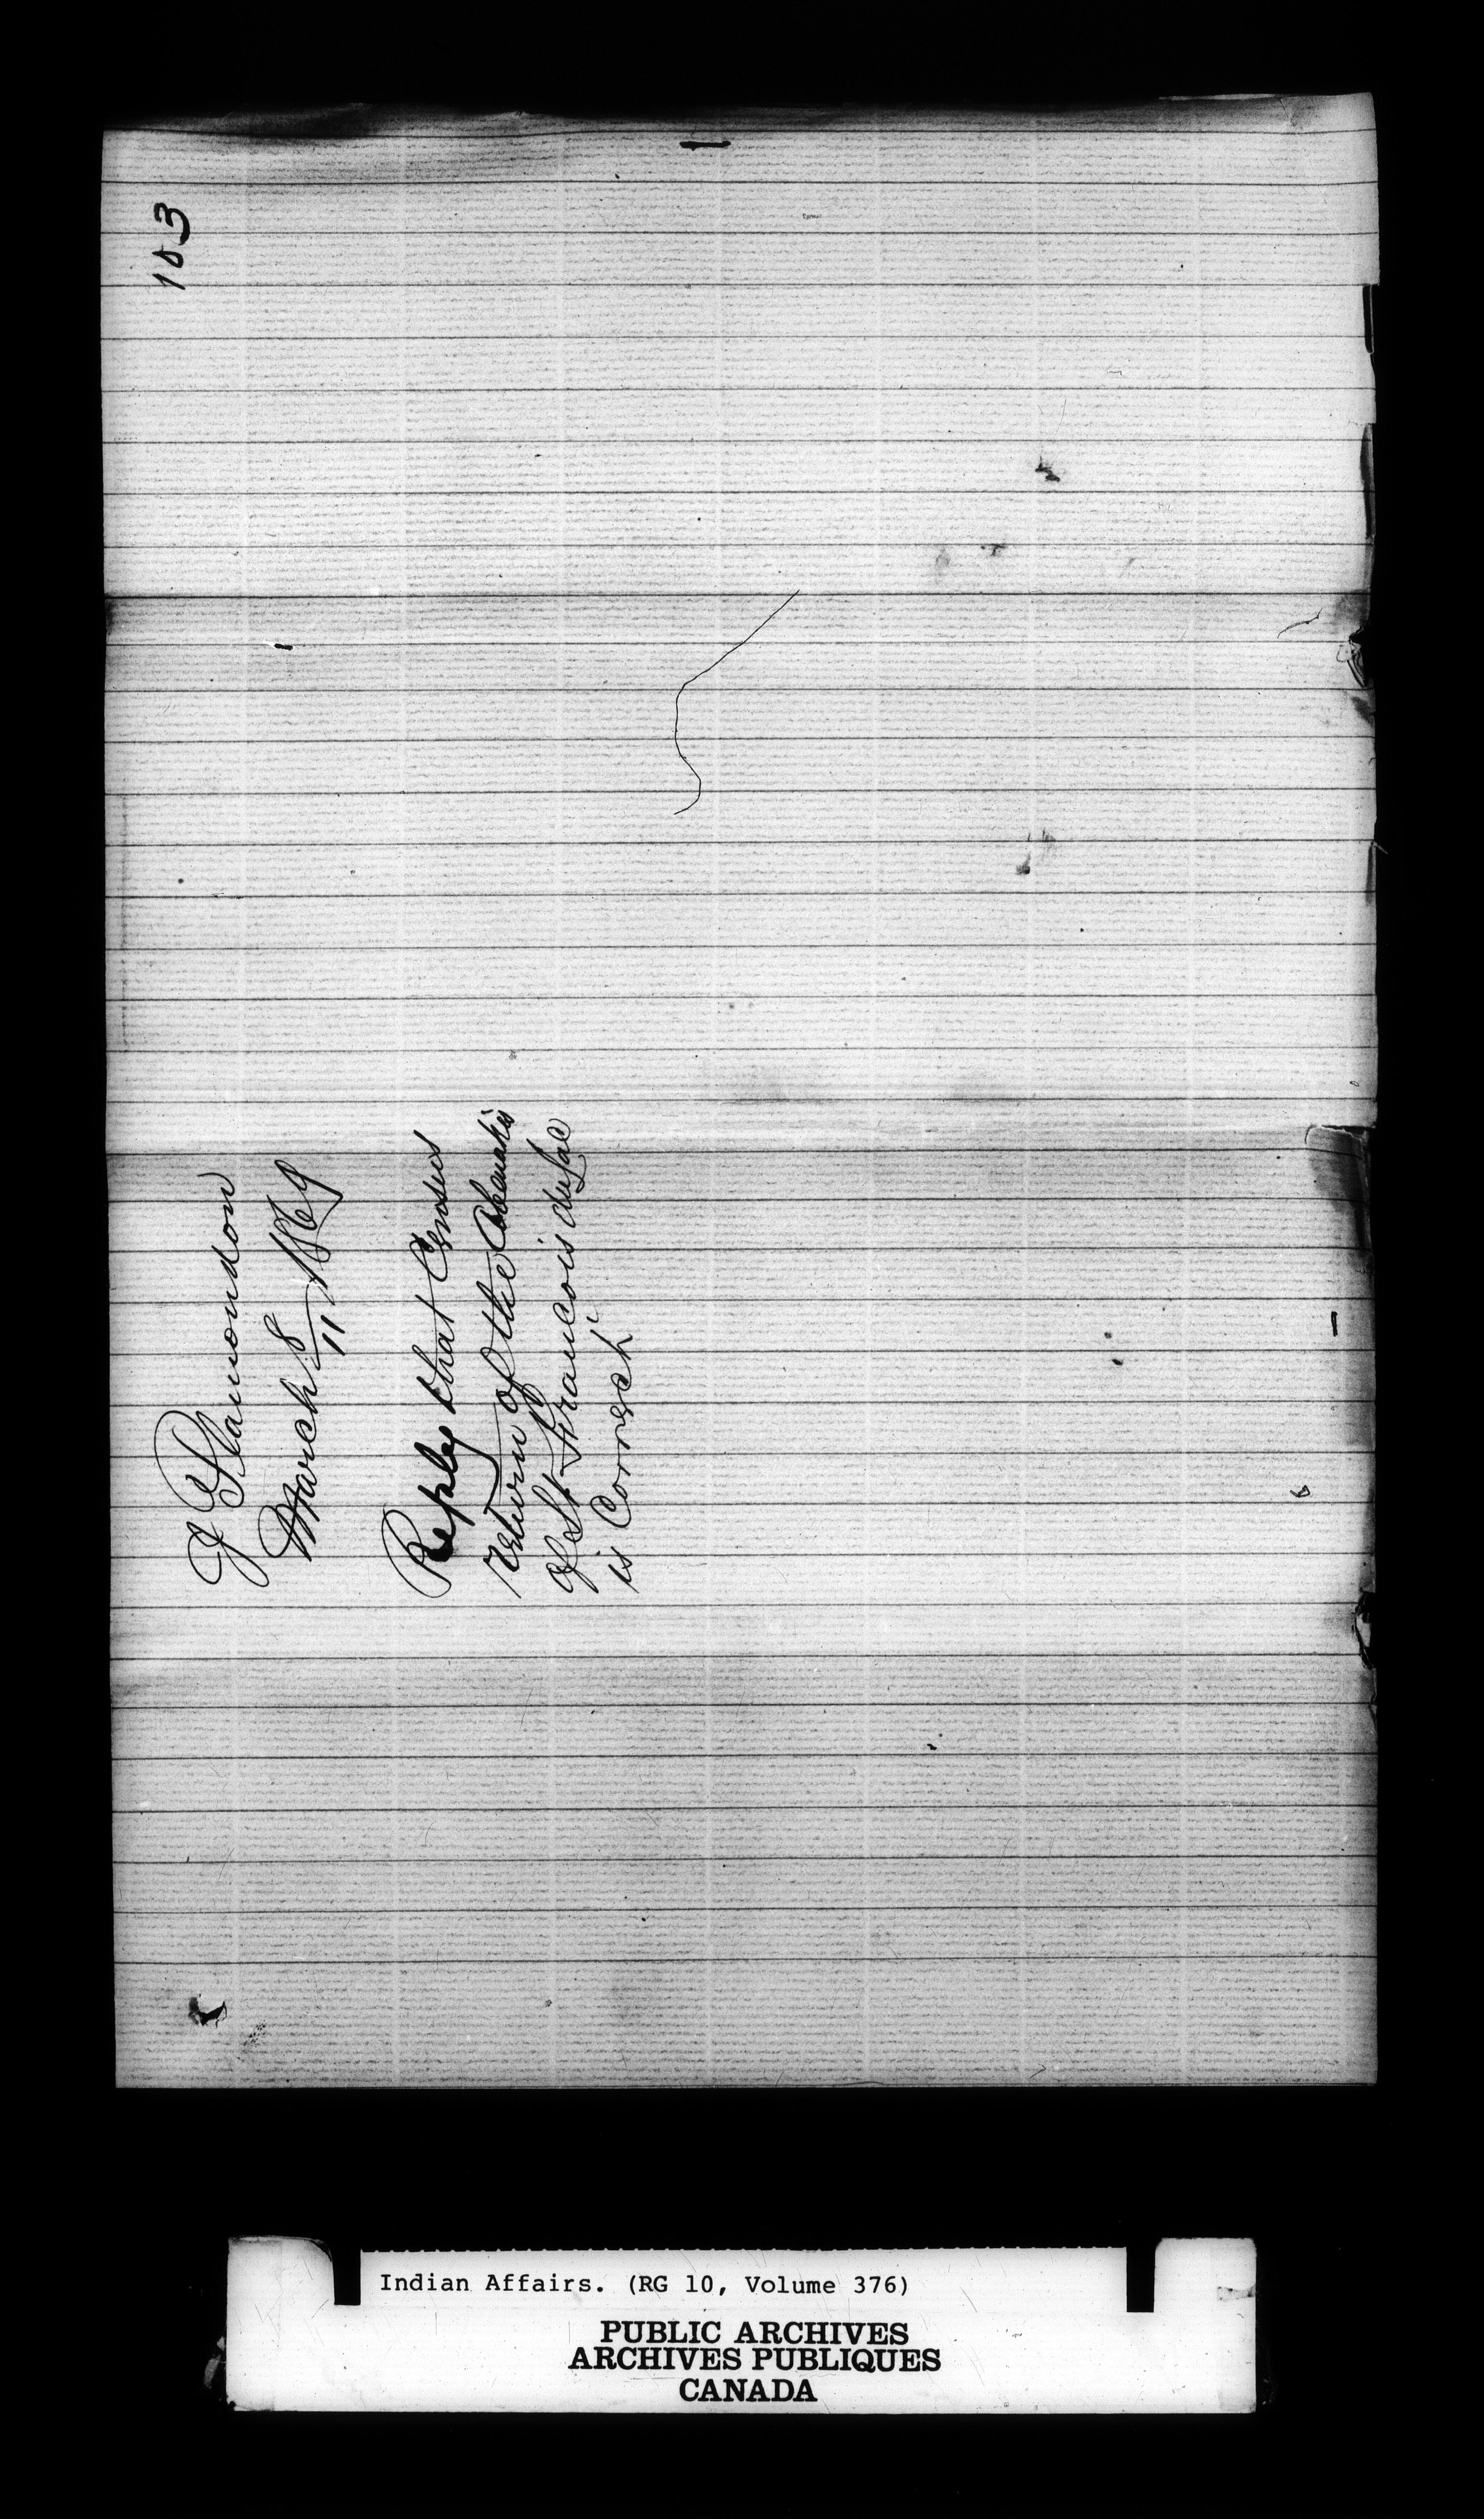 103
J Plamondon
March 8/11 1869
Reply that Census
return of the Abenakis
of St Francois du Lac
is Correct
Indian Affairs. (RG 10, Volume 376)
PUBLIC ARCHIVES
ARCHIVES PUBLIQUES
CANADA